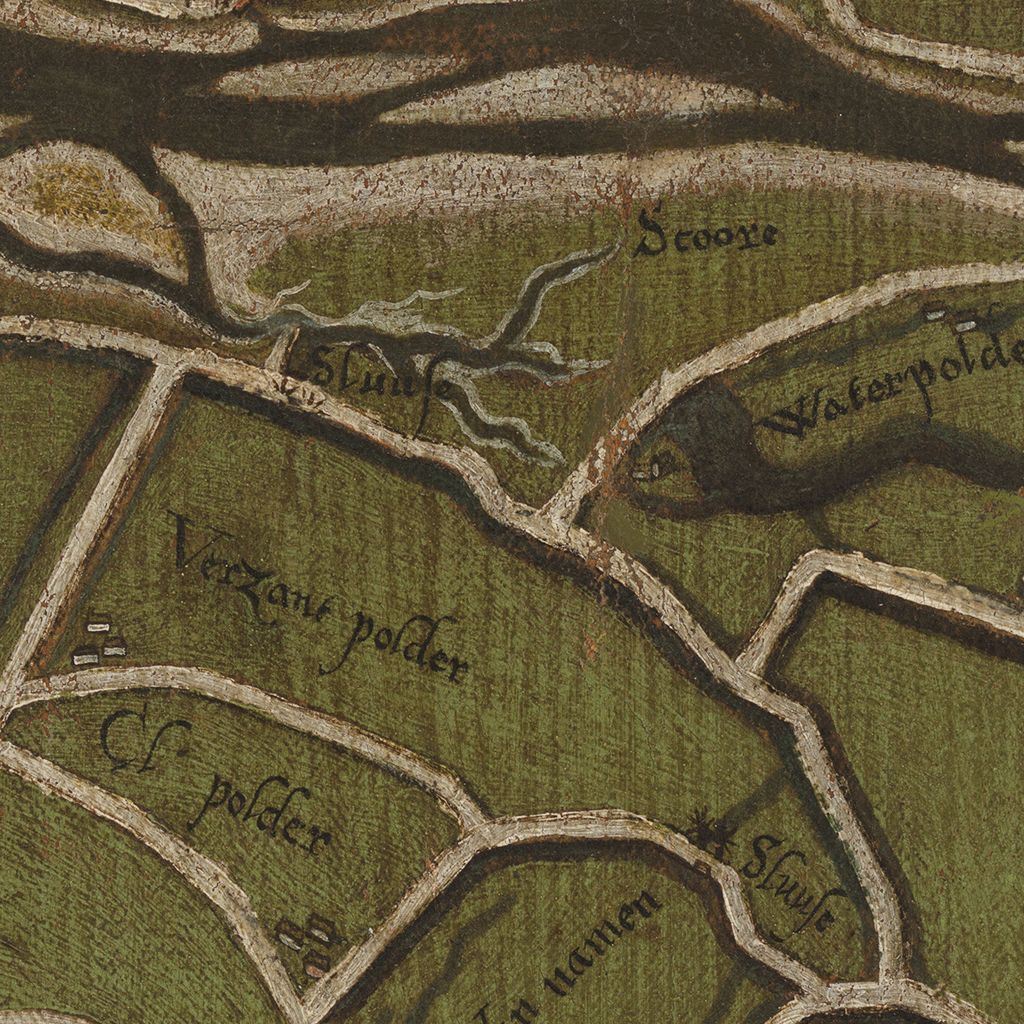 Scoore
Sluuse
Waterpolde
Verzane polder
polder
Sluuse
namen